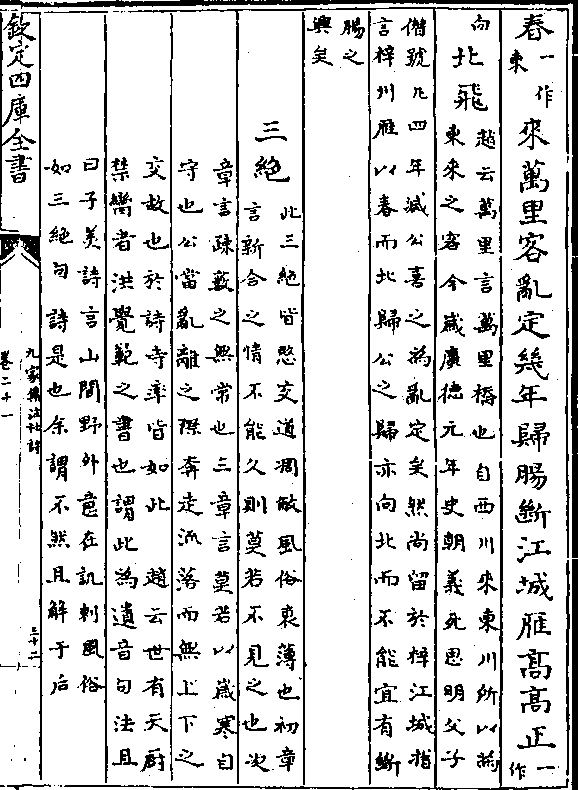 春一作東來萬里客亂定幾年歸腸斷江城雁高高正一作
向北飛
趙云萬里言萬里橋也自西川來東川所以為
東來之客今歲廣德元年史朝義死思明父子
僭號凡四年滅公喜之為亂定矣然尚留於梓江城指
言梓州雁以春而北歸公之歸亦向北而不能宜有斷
腸之
興矣
三絶
此三絶皆愍交道凋敝風俗衰薄也初章
言新合之情不能久則莫若不見之也次
章言疎薮之無常也三章言莫若以歲寒自
守也公當亂離之際奔走流落而無上下之
交故也於詩寺率皆如此 趙云世有天厨
禁臠者洪覺範之書也謂此為遺音句法且
曰子美詩言山間野外意在譏刺風俗
如三絶句詩是也余謂不然且解于后
欽定四庫全書
九家集注杜詩
卷二十一
三十二